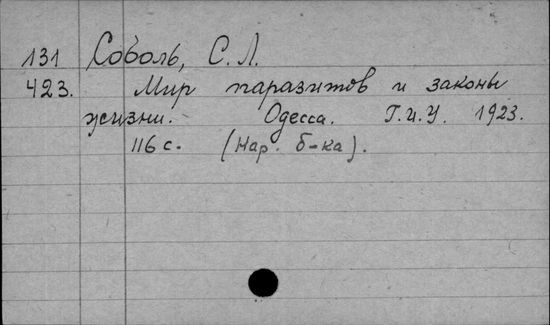 131 Соболь, С. Л.
423. Мир паразитов и законы
жизни. Одесса. Г.И.У. 1923.
116 с. (Нар. б-ка).